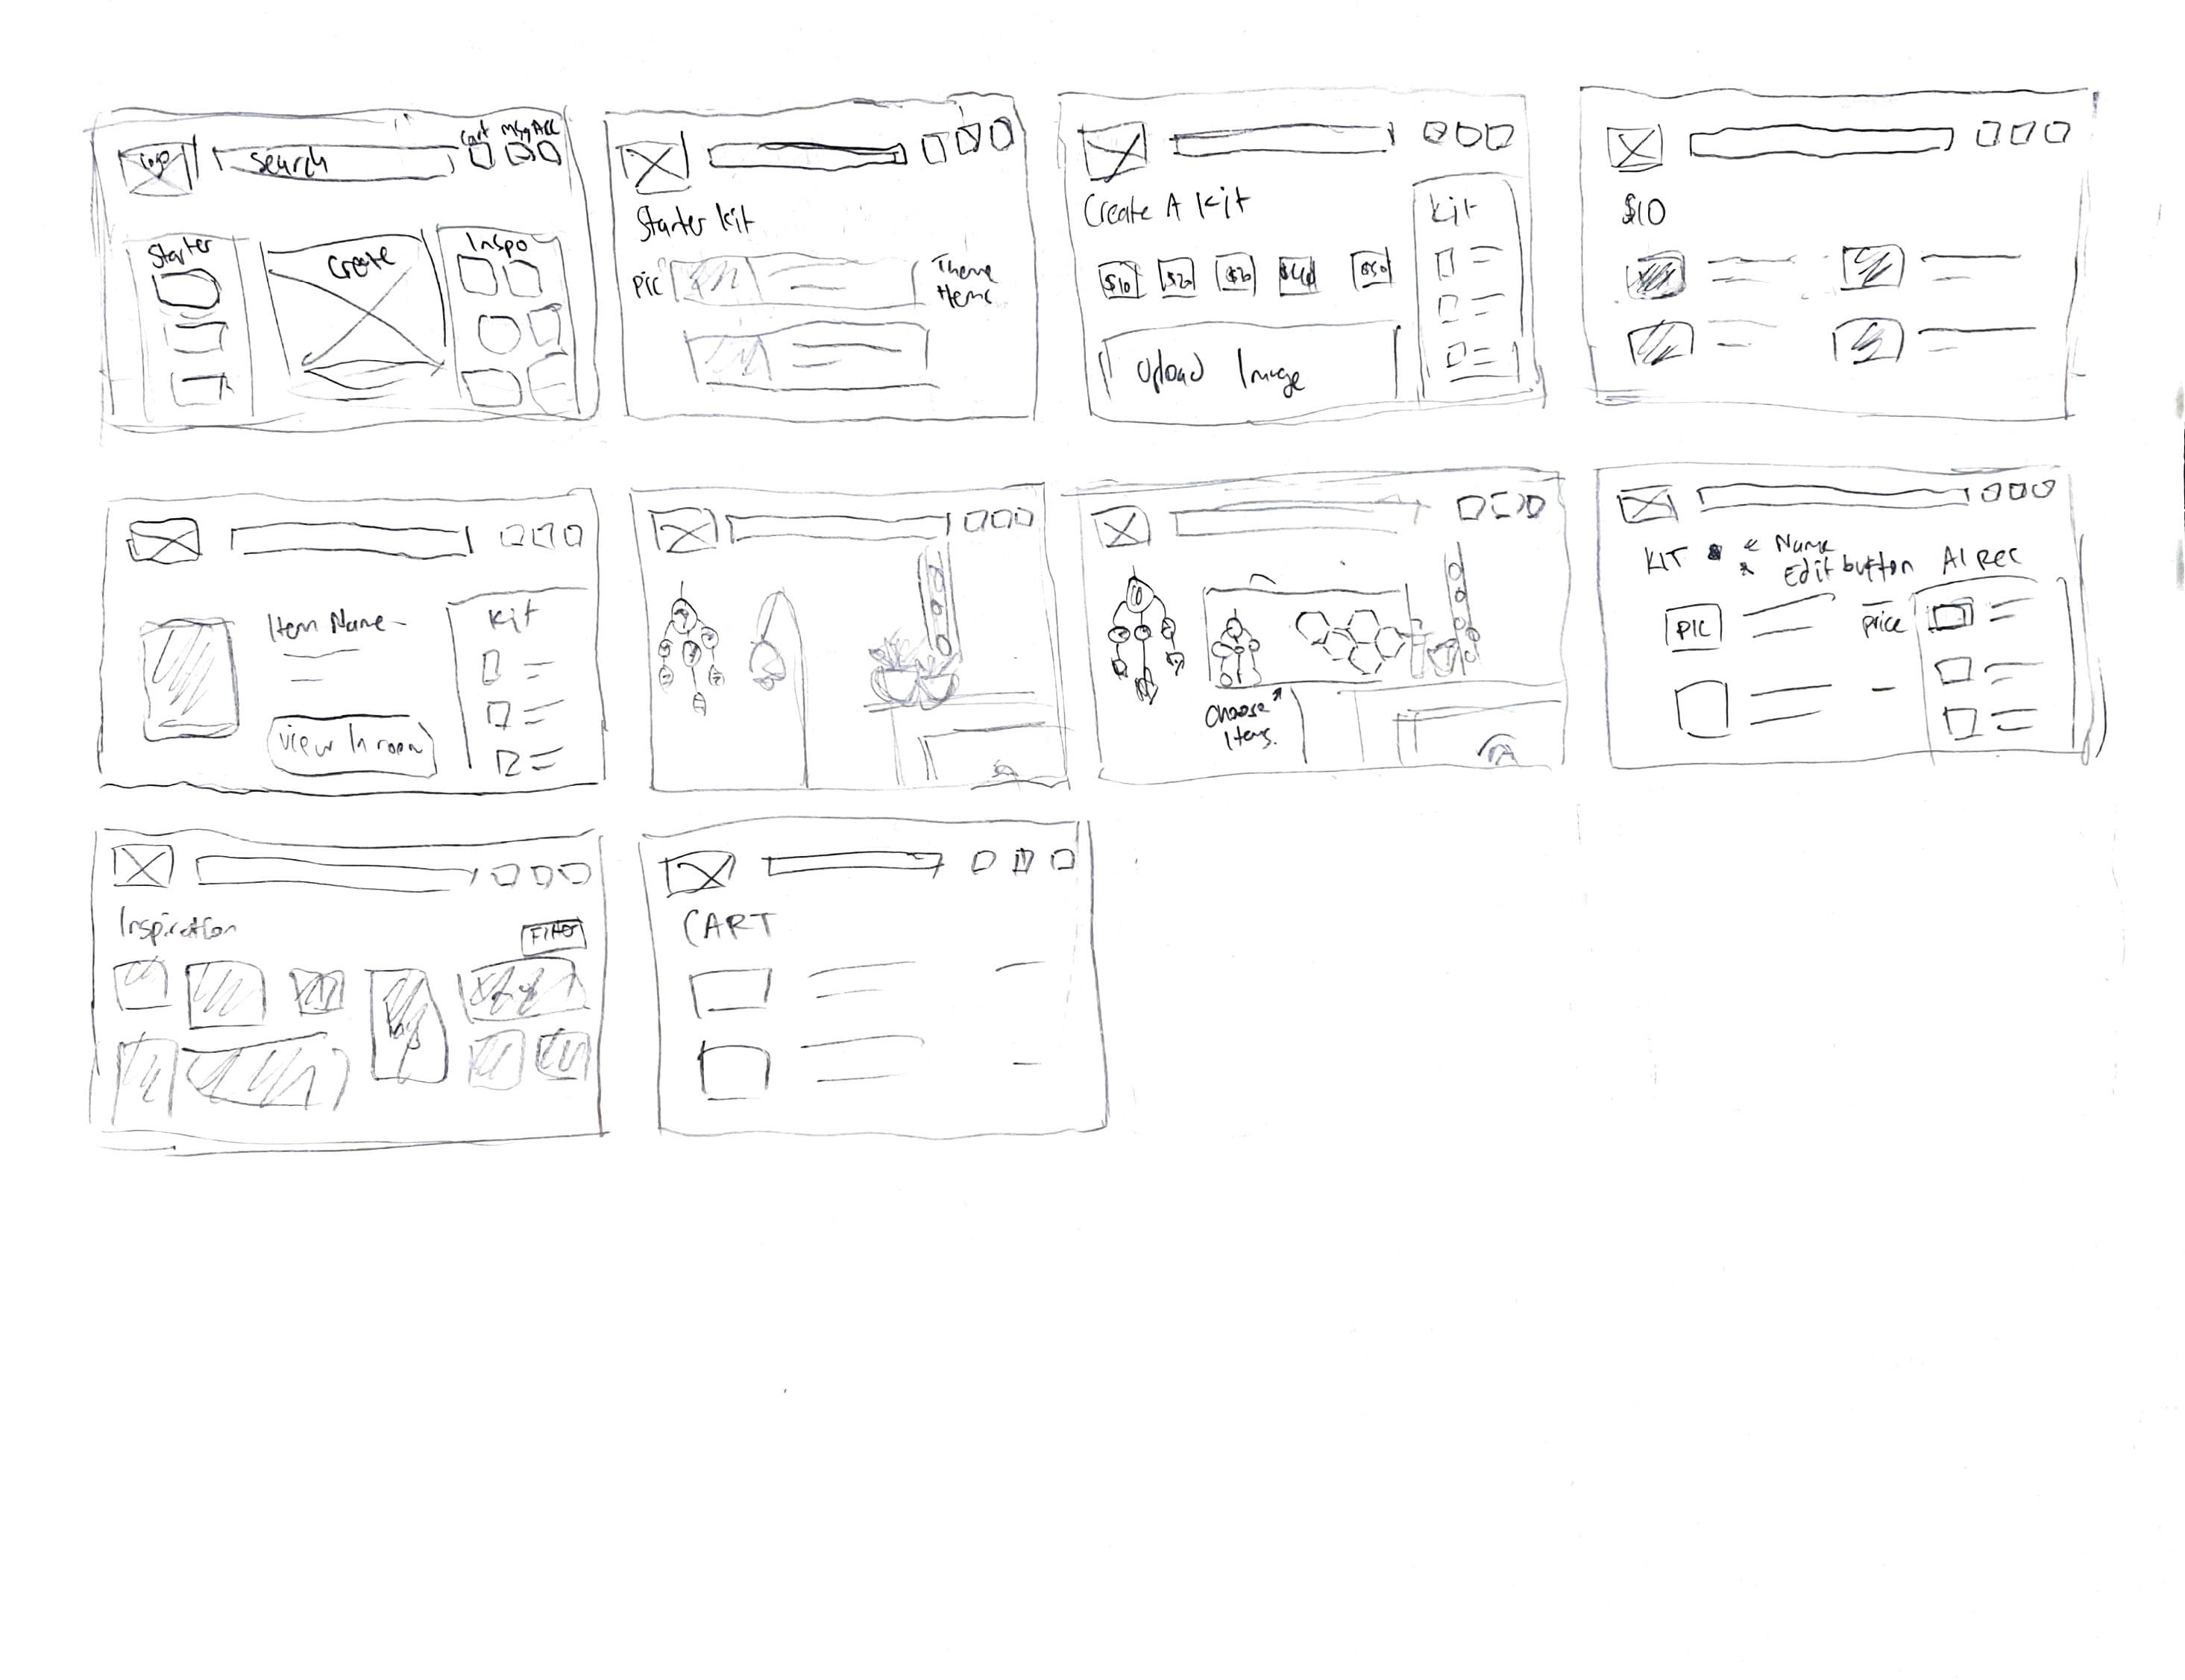 Logo
Search
Cart Msg Acc
Starter
Create
Inspo
Starter Kit
Pic
Theme
Items
Create A Kit
Kit
$10
$20
$40
$50
Upload Image
$10
Item Name
Kit
View In room
Choose
Items.
KIT
Name
Edit button
AI Rec
PIC
price
Inspiration
Filter
CART